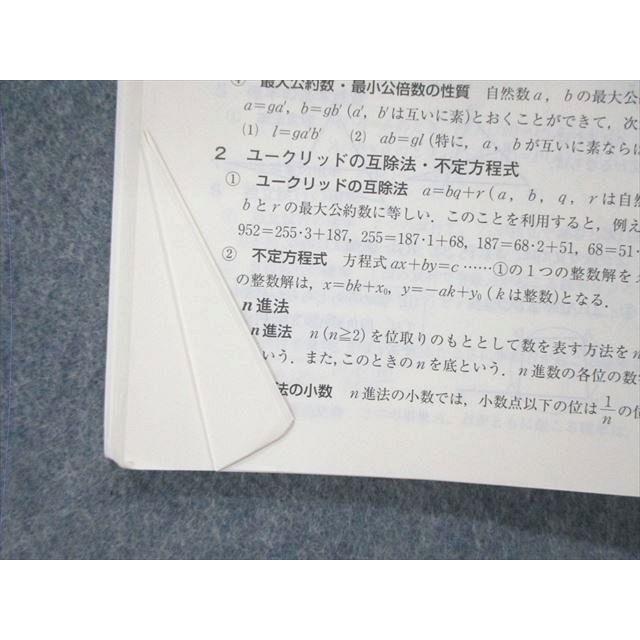 ④ 最大公約数・最小公倍数の性質 自然数a, bの最大公
a=ga′, b=gb′ (a′, b′は互いに素)とおくことができて, 次
(1) l=ga′b′ (2) ab=gl (特に, a, bが互いに素なら
2 ユークリッドの互除法・不定方程式
① ユークリッドの互除法 a=bq+r (a, b, q, rは自
bとrの最大公約数に等しい. このことを利用すると, 例え
952=255·3+187, 255=187·1+68, 187=68·2+51, 68=51·
② 不定方程式 方程式ax+by=c ……①の1つの整数解を
の整数解は, x=bk+x₀, y=-ak+y₀ (kは整数)となる.
n進法
n進法 n(n≧2)を位取りのもととして数を表す方法をn
いう. また, このときのnを底という. n進数の各位の数
法の小数 n進法の小数では, 小数点以下の位は1/nの